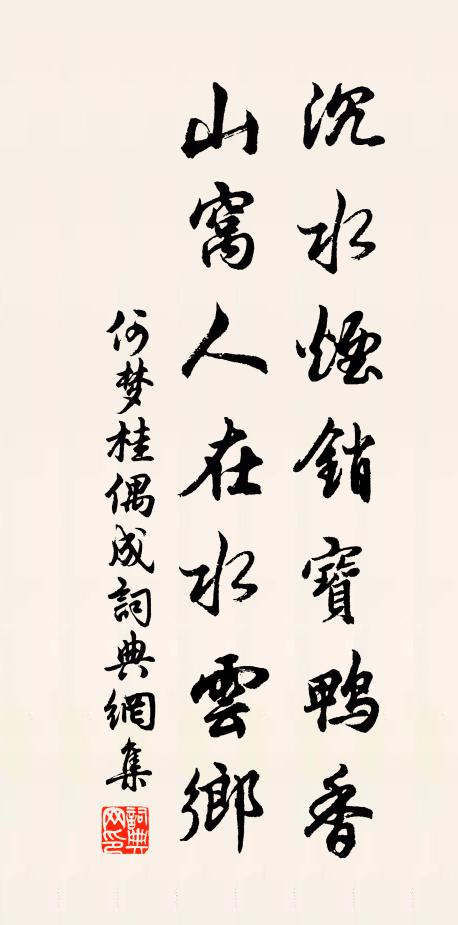 沉水煙銷寶鴨香
山窩人在水雲鄉
何梦桂偶成詞典網集
詞典網印